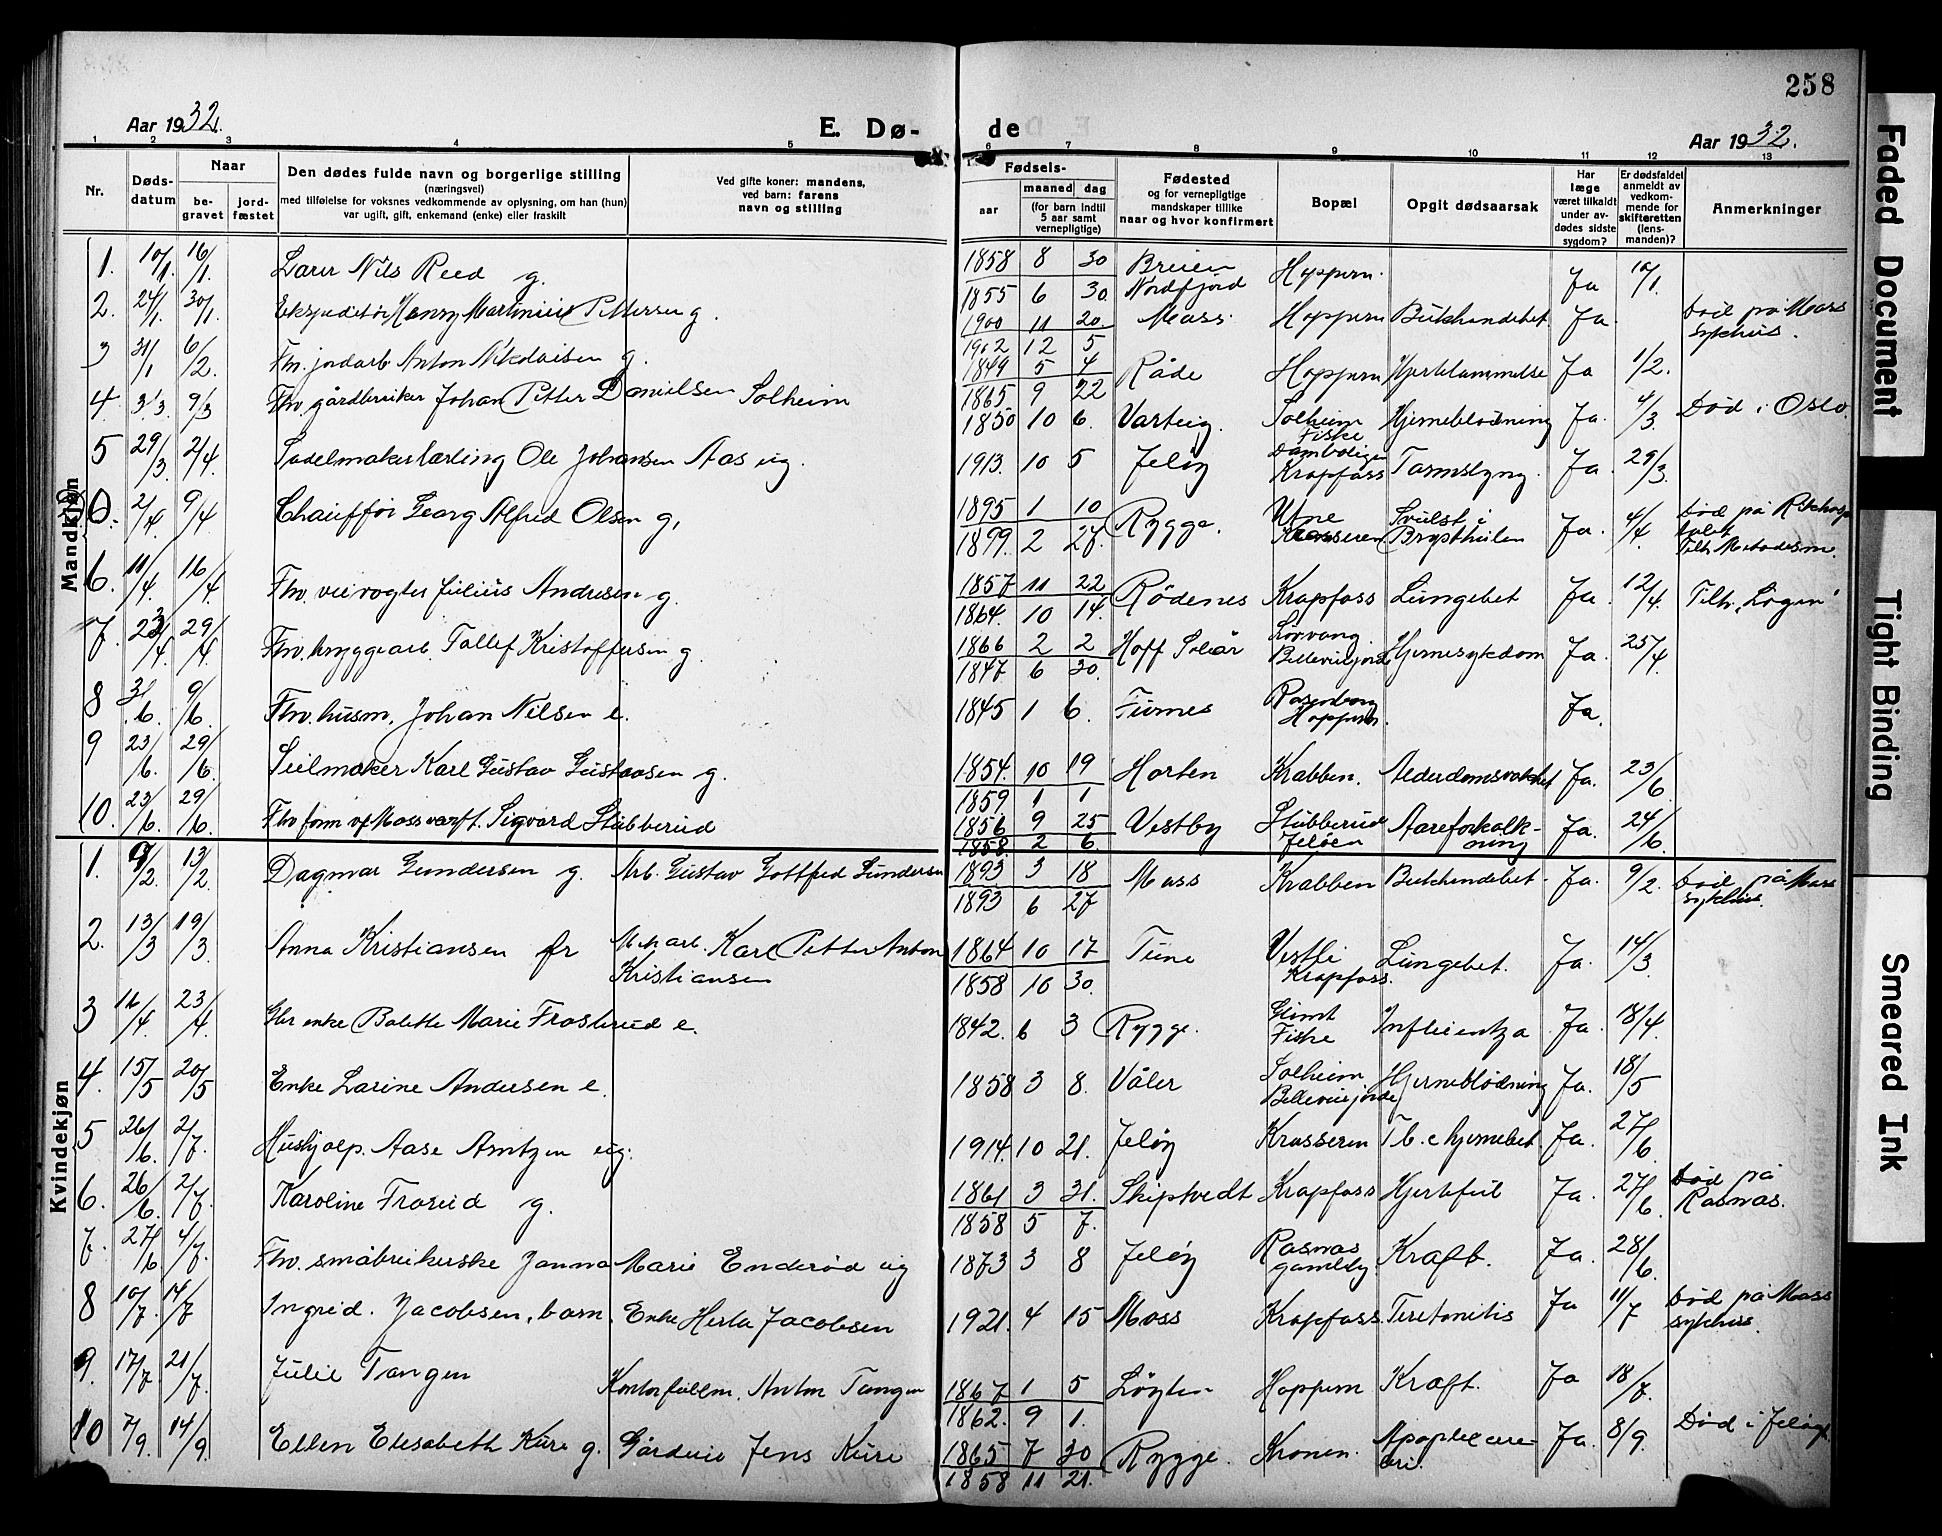 258
Aar 1932.
E. Dø- de
Aar 1932.
1 2 3 4 5 6 7 8 9 10 11 12 13
Nr.
Døds-
datum
Naar
be-
gravet
jord-
fæstet
Den dødes fulde navn og borgerlige stilling
(næringsvei)
med tilføielse for voksnes vedkommende av oplysning, om han (hun)
var ugift, gift, enkemand (enke) eller fraskilt
Ved gifte koner: mandens,
ved barn: farens
navn og stilling
Fødsels-
aar
maaned dag
(for barn indtil
5 aar samt
vernepligtige)
Fødested
og for vernepligtige
mandskaper tillike
naar og hvor konfirmert
Bopæl
Opgit dødsaarsak
Har
læge
været tilkaldt
under av-
dødes sidste
sygdom?
Er dødsfaldet
anmeldt av
vedkom-
mende for
skifteretten
(lens-
manden)?
Anmerkninger
Mandkjøn
1. 10/1. 16/1. Lærer Nils Reed g. 1858 8 30 Breien Nordfjord Hoppern. Ja 10/1.
1855 6 30.
2. 24/1. 30/1. Ekspeditør Henry Martinius Pettersen g. 1900 11 20. Moss Hoppern Bukhindebet. Ja. Død på Moss sykehus.
1902 12 5
3 31/1 6/2. Fhv. jordarb Anton Nikolaisen g. 1849 5 4 Råde Hoppern Hjertelammelse Ja 1/2.
1865 9 22
4. 3/3. 9/3 Fhv. gårdbruker Johan Petter Danielsen Solheim 1850 10 6. Varteig. Solheim Fiske Hjerneblødning Ja. 4/3. Død i Oslo.
5 29/3 2/4. Sadelmakerlærling Ole Johansen Aas ug. 1913. 10 5 Jeløy Damboligen Krapfoss Tarmslyng. Ja. 29/3.
2/4. 9/4 Chauffør Georg Alfred Olsen g, 1895 1 10 Rygge. Utne Krosseren Svulst i Brysthulen Ja. 4/4. Død på Rikshospitalet Tilh. Metodistm.
1899. 2 27.
6. 11/4. 16/4. Fhv. veivogter Julius Andresen g. 1857 11 22 Rødenes Krapfoss Lungebet Ja. 12/4. Tilh. "Logen"
1864. 10 14.
7. 23/4. 29/4. Fhv. bryggearb. Tollef Kristoffersen g. 1866 2 2 Hoff Solør Bellevuejordet Hjernesykdom Ja. 25/4
1847 6 30.
8 3/6. 9/6. Fhv. husm. Johan Nilsen e. 1845 1 6. Furnes Rosenborg Hoppern. Ja.
9 23/6. 29/6. Seilmaker Karl Gustav Gustavsen g. 1854. 10 19 Horten Krabben. Alderdomsvakhet Ja. 23/6.
1859. 1 1
10. 23/6. 29/6. Fhv form v/ Moss værft. Sigvard Stubberud 1856 9 25 Vestby Stubberud Jeløen Aareforkalk-ning Ja. 24/6.
1858. 2 6.
Kvindekjøn
1. 9/2. 13/2. Dagmar Gundersen g. Arb. Gustav Gottfred Gundersen 1893 3 18 Moss Krabben Bukhindebet. Ja. 9/2. Død på Moss sykehus.
1893 6 27
2. 13/3 19/3. Anna Kristiansen fr Mek arb. Karl Petter Anton 1864. 10 17 Tune Vestli Krapfoss. Lungebet. Ja. 14/3.
Kristiansen 1858 10 30.
3 16/4 23/4. Gbr enke Bolette Marie Frosterud e. 1842. 6 3 Rygge. Glimt Fiske Influentza Ja. 18/4
4. 15/5 20/5 Enke Larine Andersen e. 1858 3 8. Våler Solheim Bellevuejordet Hjerneblødning Ja. 18/5
5 26/6. 2/7. Hushjelp. Aase Arntzen ug. 1914. 10 21. Jeløy Krosseren Tb. c hjernebet Ja. 27/6.
6. 26/6. 2/7. Karoline Frorud g. 1861 3 31. Skiptvedt Krapfoss Hjertefeil Ja. 27/6. Død på Rosnæs.
1858 5 7.
7. 27/6 4/7. Fhv. småbrukerske Janna Marie Enderød ug 1873 3 8 Jeløy Rosnæs gamleby. Kræft. Ja 28/6.
8 10/7. 14/7 Ingrid. Jacobsen, barn. Enke Herla Jacobsen 1921. 4 15 Moss Krapfoss. Peretonitis Ja 11/7 Død på Moss sykehus.
9. 17/7 21/7. Julie Tangen Kontorfullm. Anton Tangen 1867. 1 5 Løyten Hoppern Kræft. Ja 18/7.
1862. 9 1.
10 7/9. 14/9. Ellen Elisabeth Kure g. Gårdeier Jens Kure 1865 7 30 Rygge. Kronen. Ja. 8/9. Død i Jeløy.
1858 11 21.
Faded Document
Tight Binding
Smeared Ink